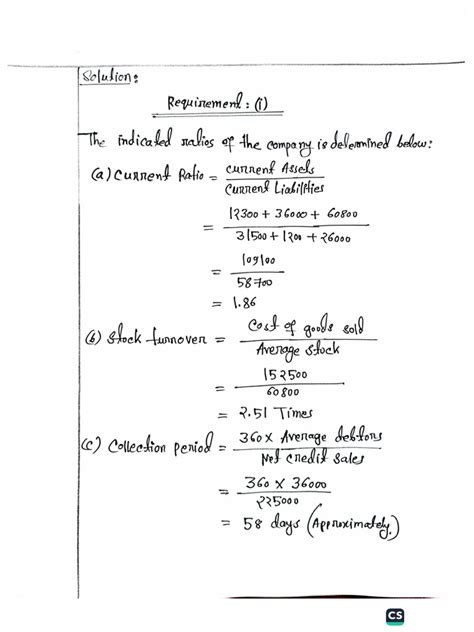 Solution:
Requirement: (i)
The indicated ratios of the company is determined below:
(a) Current Ratio = Current Assets / Current Liabilities
= 12300 + 36000 + 60800 / 31500 + 1200 + 26000
= 109100 / 58700
= 1.86
(b) Stock turnover = Cost of goods sold / Average Stock
= 152500 / 60800
= 2.51 Times
(c) Collection period = 360 x Average debtors / Net credit Sales
= 360 x 36000 / 225000
= 58 days (Approximately.)
CS